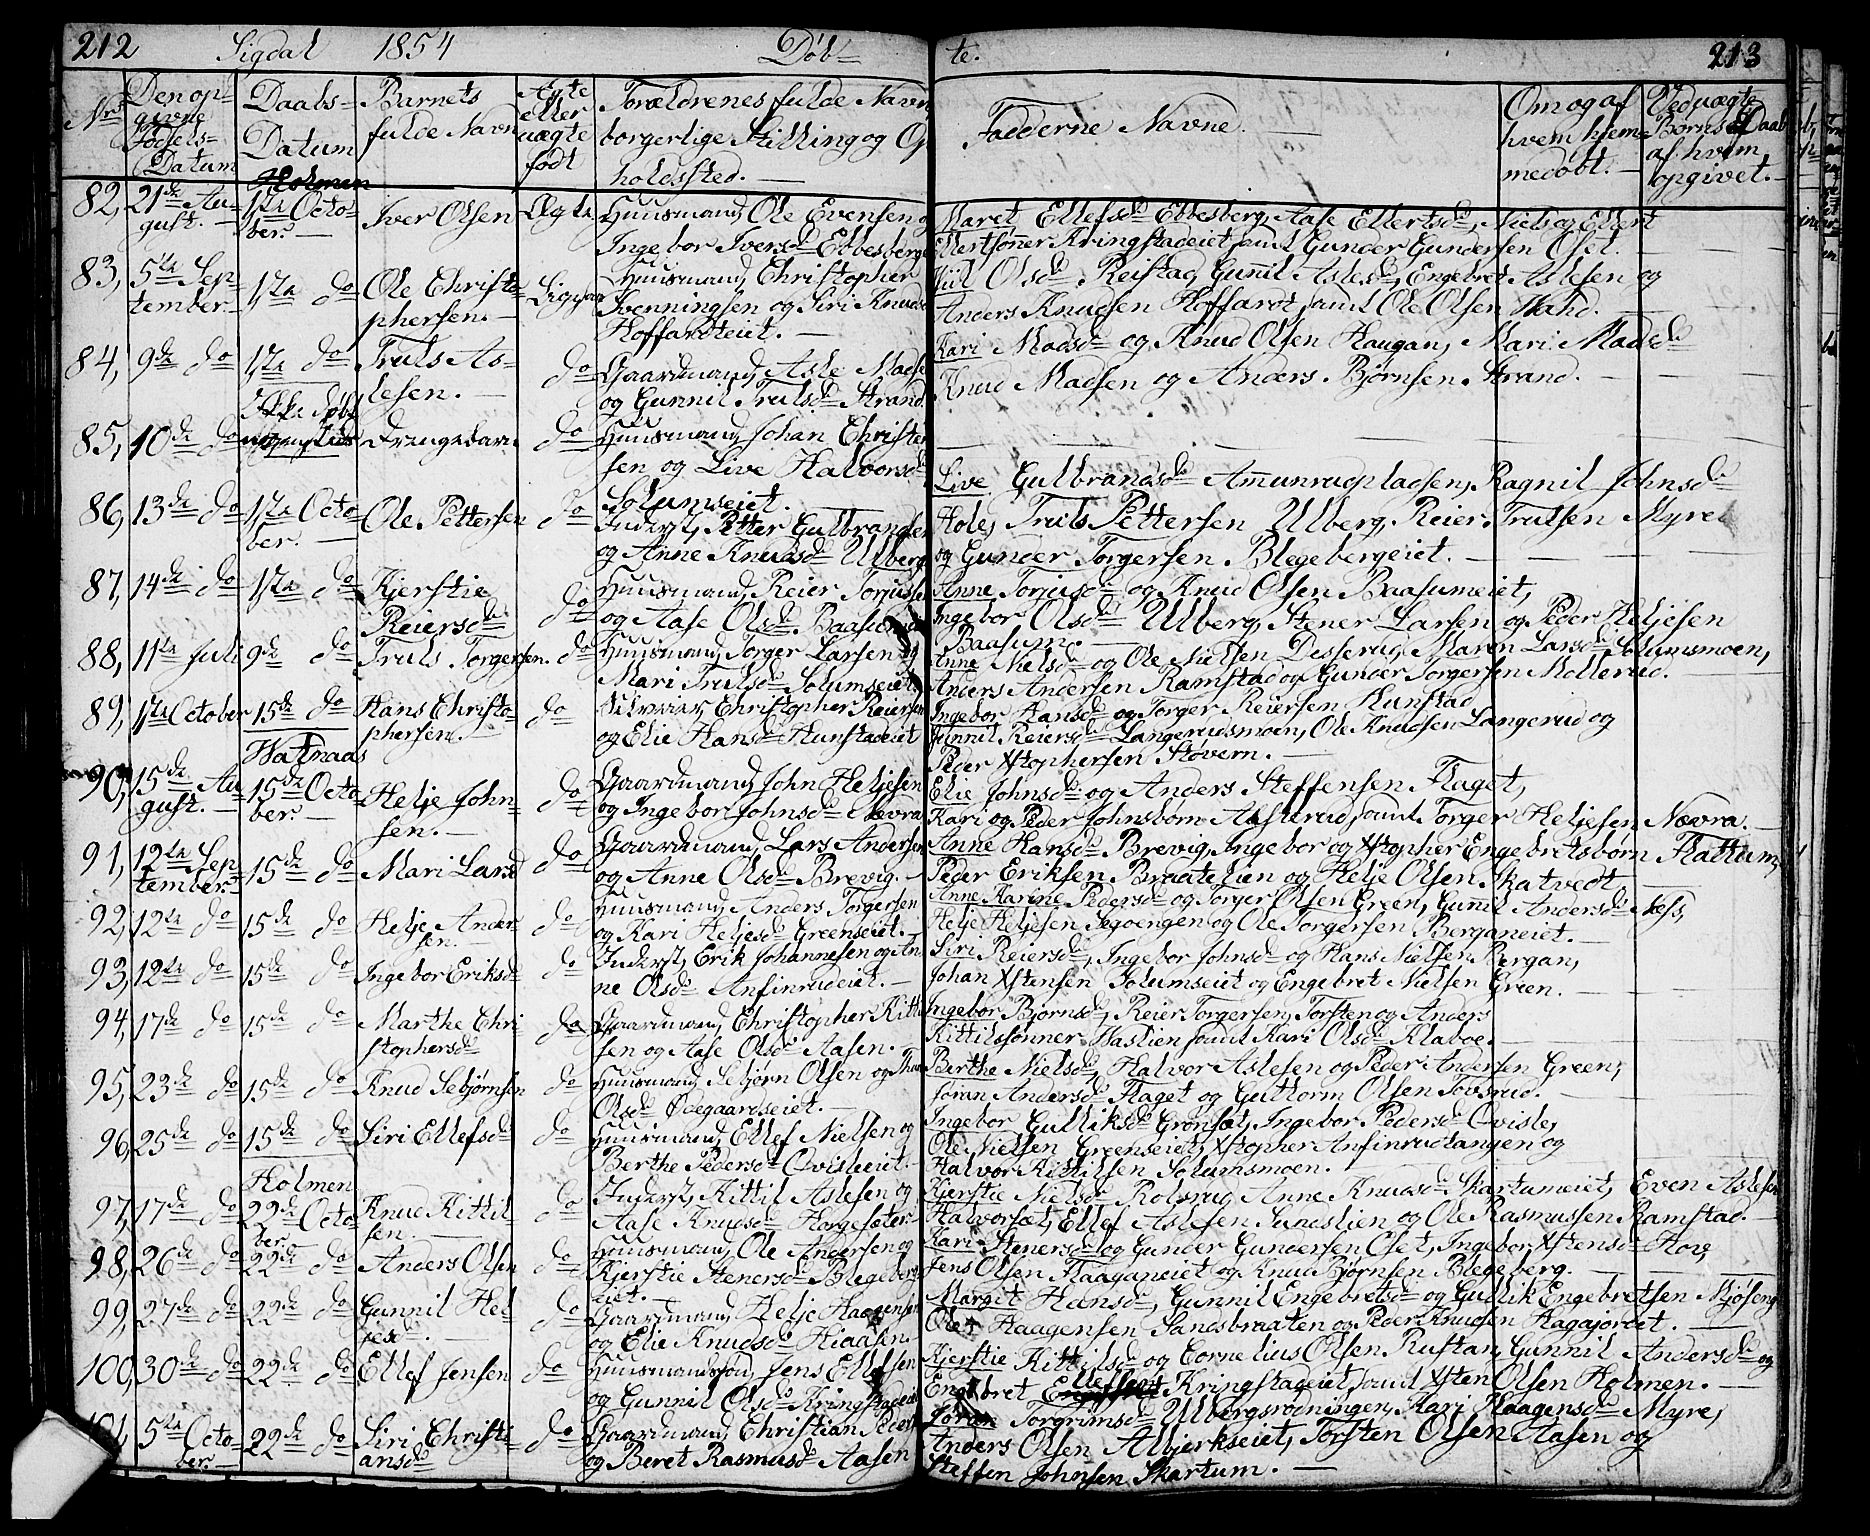 212 Sigdal 1854 Døb- te. 213
Nr. Den op- givne Fødsels- Datum
Daabs- Datum
Barnets fulde Navn
Ægte eller uægte født
Forældrenes fulde Navn borgerlige Stilling og Op- holdssted. —
Faddernes Navne. —
Om og af hvem hjem- medøbt. —
Ved uægte Børns Daab af hvem opgivet. —
Holmen
82, 21de Au- 1ste Octo- Iver Olsen Ægte Huusmand, Ole Evensen og Maret Ellefsd. Ebbesberg, Aase Ellertsd., Niels og Ellert
gust. — ber. — Ingebor Iversd. Ebbesberg Ellertsønner Kringstadeiet, samt Gunder Gundersen Oset. —
83, 5te Sep- 1ste do Ole Christo- Huusmand, Christopher Olsd. Reistad, Gunnil Aslesd., Engebret Aslesen og
tember. — phersen. — Svenningsen og Siri Knudsd. Anders Knudsen Hoffardt, samt Ole Olsen Hahd. —
Hoffardteiet. —
84, 9de do 1ste do Truls As- do Gaardmand, Asle Madsen Kari Madsd. og Knud Olsen Haugan, Mari Madsd.
lesen. — og Gunnil Trulsd. Strand. Knud Madsen og Anders Bjørnsen Strand. —
85, 10de do Drengebarn do Huusmand, Johan Christen-
sen og Live Halvorsd.
Solumseiet. —
86, 13de do 1ste Octo- Ole Pettersen do Inderst, Petter Gulbrandsen Live Gulbrandsd. Amunrudpladsen, Ragnil Johnsd.
ber. — og Anne Knudsd. Ulberg Hole, Truls Pettersen Ulberg, Reier Trulsen Myre
og Gunder Torgersen Blegebergeiet. —
87, 14de do 1ste do Kjerstie do Huusmand, Reier Torjussen Anne Torjusd. og Knud Olsen Baasumeiet,
Reiersd. og Aase Olsd. Baasumeiet Ingebor Olsd. Ulberg, Stener Larsen og Peder Heljesen
Baasum. —
88, 11te Juli 9de do Truls Torgersen. do Huusmand, Torger Larsen og Anne Nielsd. og Ole Nielsen Desserud, Maren Larsd. Solumsmoen,
Mari Trulsd. Solumseiet. Anders Andersen Ramstad og Gunder Torgersen Mollerud.
89, 1ste October 15de do Hans Christo- do Christopher Reiersen Ingebor Hansd. og Torger Reiersen Hunstad
phersen. og Elie Hansd. Hunstadeiet Gunnil Reiersd. Langerudsmoen, Ole Knudsen Langerud og
Peder Xstophersen Støvern. —
Vatnaas
90, 15de Au- 15de Octo- Helje John- do Gaardmand, John Heljesen Elie Johnsd. og Anders Steffensen Flaget,
gust. — ber. — sen. — og Ingebor Johnsd. Nævra Kari og Peder Johnsbørn Aaslerud, samt Torger Heljesen Nævra. —
91, 12te Sep- 15de do Mari Larsd. do Gaardmand, Lars Andersen Anne Hansd. Brevig, Ingebor og Xstopher Engebretsbørn Flattum,
tember. og Anne Olsd. Brevig. — Peder Eriksen Braatelien og Helje Olsen Skatvedt. —
92, 12te do 15de do Helje Ander- do Huusmand, Anders Torgersen Anne Karine Pedersd. og Torger Olsen Green, Gunnil Andersd. Næss,
sen. — og Kari Heljesd. Greenseiet. — Helje Heljesen Segoengen og Ole Torgersen Berganeiet. —
93, 12te do 15de do Ingebor Eriksd. do Inderst, Erik Johannesen og An- Siri Reiersd., Ingebor Johnsd. og Hans Nielsen Bergan,
ne Olsd. Anfinrudeiet. — Johan Xstensen Solumseiet og Engebret Nielsen Green. —
94, 17de do 15de do Marthe Chri- do Gaardmand, Christopher Kittil- Ingebor Bjørnsd., Reier Torgersen, Torsten og Anders
stophersd. sen og Aase Olsd. Aasen. — Kittilsønner Haslien samt Kari Olsd. Klaboe.
95, 23de do 15de do Knud Sebjørnsen do Huusmand, Sebjørn Olsen og Thora Berthe Nielsd., Halvor Aslesen og Peder Andersen Green,
Olsd. Ødegaardseiet. — Jøran Andersd. Flaget og Guttorm Olsen Tovsrud. —
96, 25de do 15de do Siri Ellefsd. do Huusmand, Ellef Nielsen og Ingebor Gulliksd. Grønset, Ingebor Pedersd. Qvisle,
Berthe Pedersd. Qvisleeiet. — Ole Nielsen Greenseiet, Xstopher Anfinrudtangen og
Halvor Kittilsen Solumsmoen. —
Holmen
97, 17de do 22de Octo- Knud Kittil- do Inderst, Kittil Aslesen og Kjerstie Nielsd. Rolsrud, Anne Knudsd. Skartumeiet, Even Aslesen
ber. sen. — Aase Knudsd. Horgesæter. Halvorset, Ellef Aslesen Sundslien og Ole Rasmussen Ramstad. —
98, 26de do 22de do Anders Olsen do Huusmand, Ole Andersen og Kari Stenersd. og Gunder Gundersen Oset, Ingebor Xstensd. Hore
Kjerstie Stenersd. Blegeberg- Jens Olsen Flaaganeiet og Knud Bjørnsen Blegeberg. —
eiet. —
99, 27de do 22de do Gunnil Hel- do Gaardmand, Helje Haagensen Margit Hansd., Gunnil Engebretsd. og Gullik Engebretsen Mjøseng
jesd. — og Elie Knudsd. Hiaasen. Ole Haagensen Sandsbraaten og Peder Knudsen Hagajordet. —
100, 30de do 22de do Ellef Jensen do Huusmandssøn, Jens Ellefsen Kjerstie Kittilsd. og Cornelius Olsen Rustan, Gunnil Andersd. og
og Gunnil Olsd. Kringstadeiet Engebret Ellefsen Kringstadeiet, samt Xsten Olsen Holmen. —
101, 5te Octo- 22de do Siri Christi- do Gaardmand, Christian Jøran Torgrimsd. Ulbergsrødningen, Kari Haagensd. Myre,
ber. — ansd. og Beret Rasmusd. Aasen Anders Olsen Albjerkseiet, Torsten Olsen Aasen og
Steffen Johnsen Skartum. —